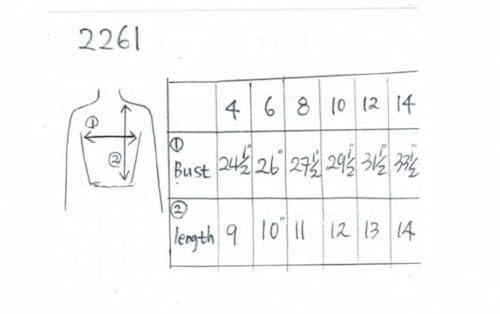 2261
①
②
4 6 8 10 12 14
① Bust 24½" 26" 27½" 29½" 31½" 33½"
② length 9 10" 11 12 13 14